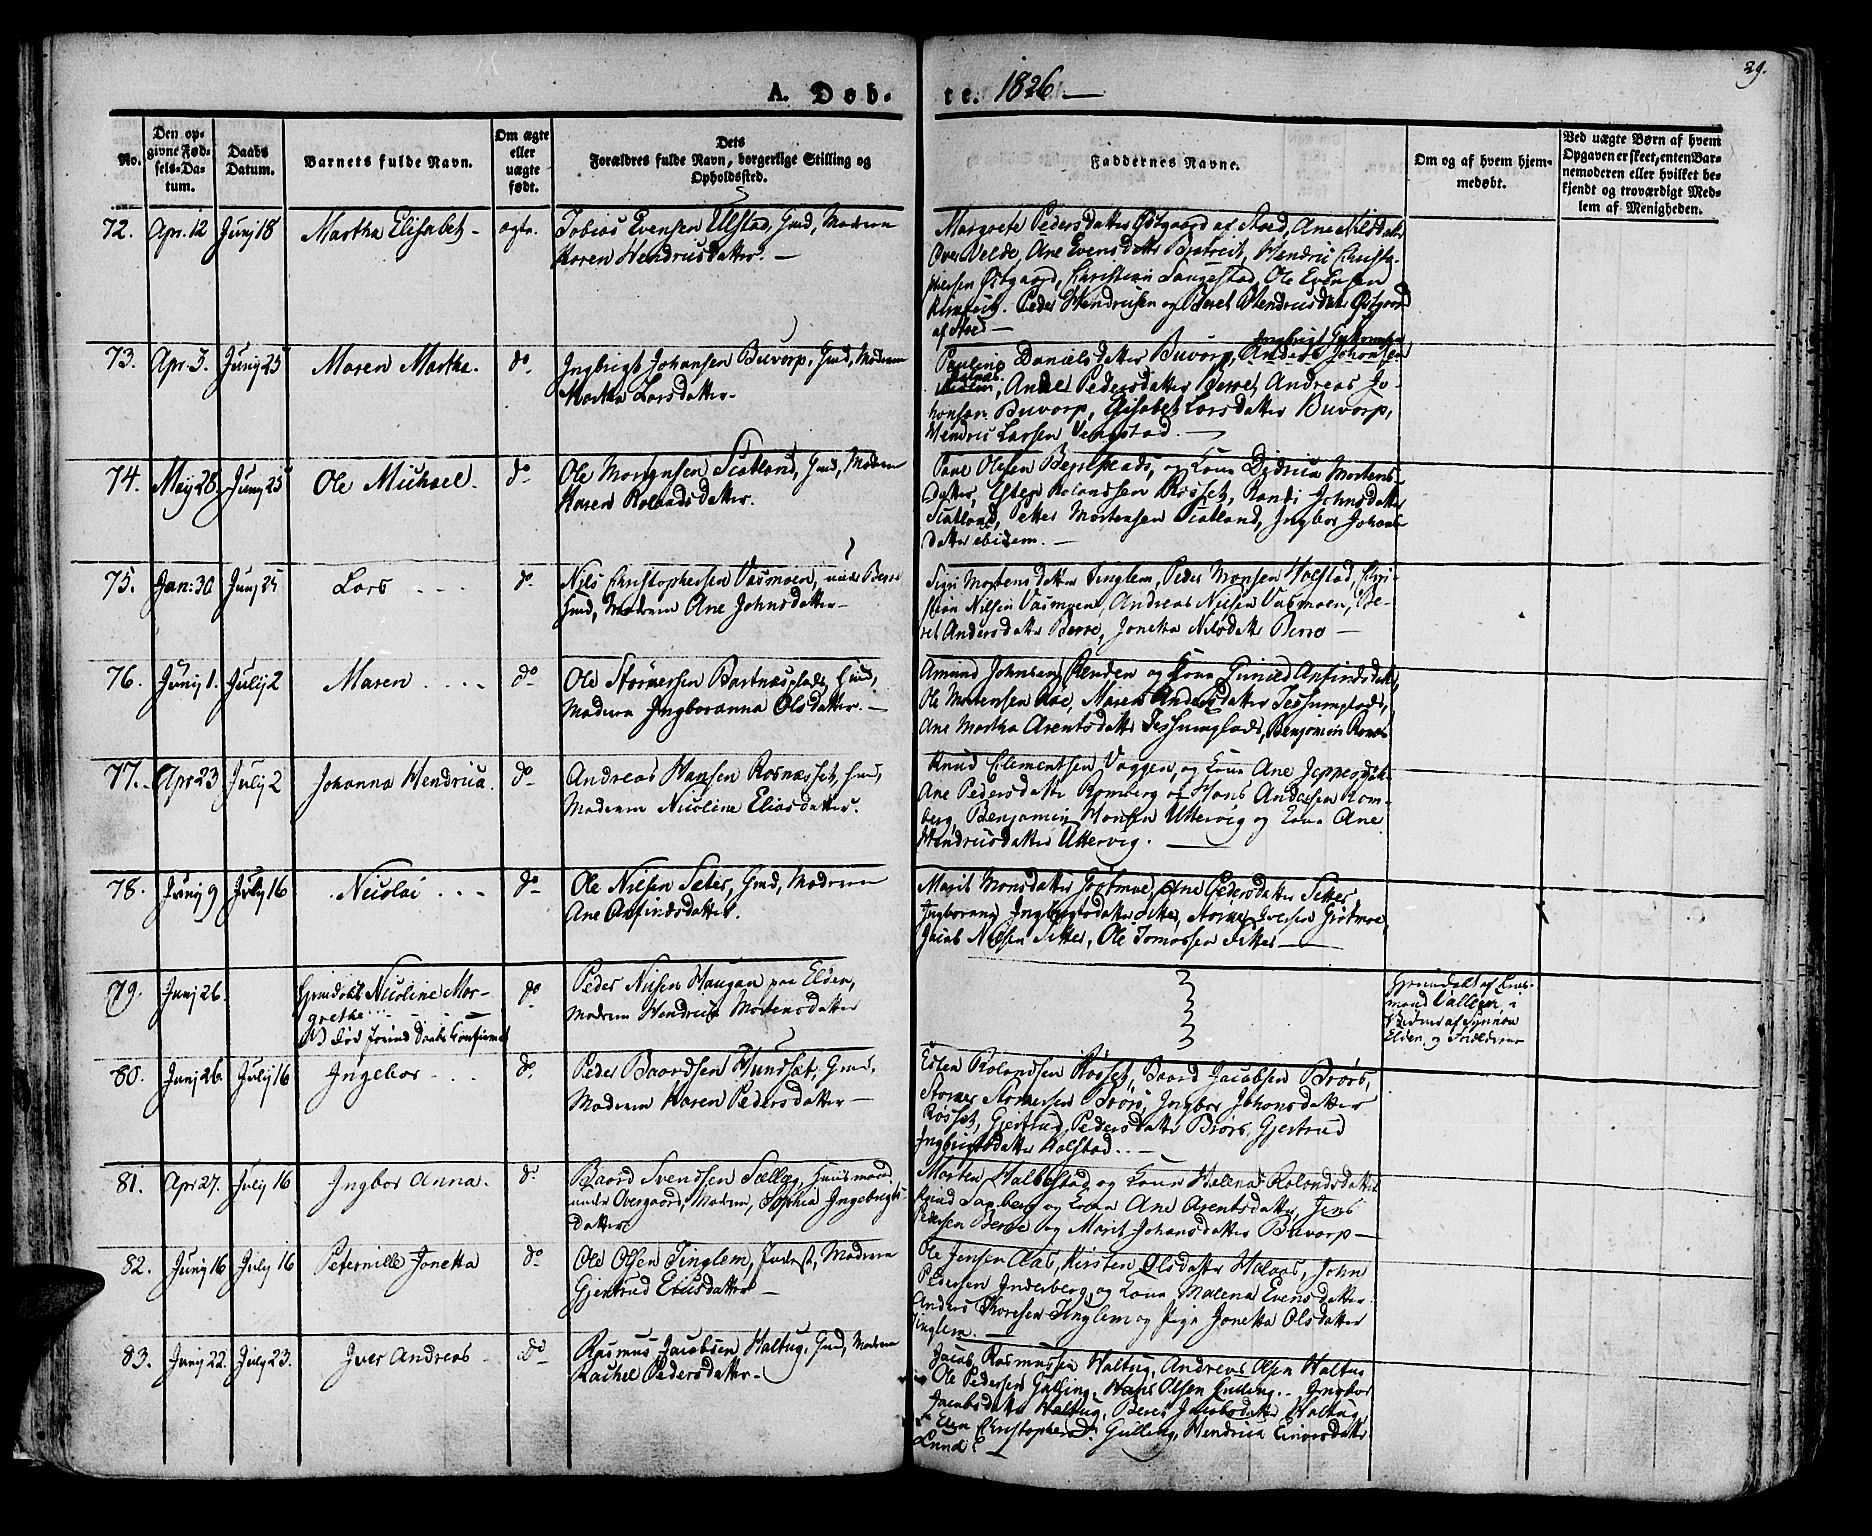 29.
A. Døb-
te. 1826 —
No.
Den op-
givne Fød-
sels-Da-
tum.
Daabs
Datum.
Barnets fulde Navn.
Om ægte
eller
uægte
født.
Dets
Forældres fulde Navn, borgerlige Stilling og
Opholdssted.
Faddernes Navne.
Om og af hvem hjem-
medøbt.
Ved uægte Børn af hvem
Opgaven er skeet, enten Bar-
nemoderen eller hvilket be-
kjendt og troværdigt Med-
lem af Menigheden.
72. Apr. 12 Junj 18 Martha Elisabet - ægte.
Tobias Evensen Ulstad, Gmd, Modren
Karen Hendricsdatter. —
Margrete Pedersdatter Østgaard af Stod, Ane Nilsdatter
Over Velde, Ane Evensdatter, Hendric Christo-
phersen Østgaard, Christian Langestad, Ole Evensen
Peder Hendricsen og Beret Hendricsdatter Østgaard
af Stod —
73. Apr. 5. Junij 25 Maren Martha. do
Ingbrigt Johansen Buvarp, Gmd, Modren
Martha Larsdatter -
Pauline Danielsdatter Buvarp, Anders Johansen
Ane Pedersdatter Berret, Andreas Jo-
hansen Buvarp, Elisabet Larsdatter Buvarp,
Hendric Larsen Vengstad. —
74. Maij 28. Junj 25 Ole Michael. do
Ole Mortensen Scatland, Gmd, Modren
Karen Rolandsdatter.
Paul Olsen og Kone Didrica Mortens-
datter, Esten Rolandsen Røsset, Randi Johnsdatter
Scatland, Petter Mortensen Scatland, Ingbor Johans-
datter ibidem. —
75. Jan: 30 Junj 25 Lars - - - do
Nils Christophersen Vasmoen, under Berre
Gmd, Modren Ane Johnsdatter -
Siri Mortensdatter Tinglem, Peder Monsen Holstad, Chri-
stian Nilsen Vasmoen, Andreas Nilsen Vasmoen, Be-
ret Andersdatter Berre, Jonetta Nilsdatter Berre —
76. Junij 1. Julij 2 Maren . . . . do
Ole Størkersen Bartnesplads, Hmd,
Modren Ingboranna Olsdatter. —
Amund Johnsen og Kone Gunild Anfindsdatter,
Ole Mortensen Aae, Maren Andersdatter
Ane Martha Arentsdatter Benjamin
77. Apr 23 Julij 2 Johanna Hendrica. do
Andreas Hansen Rosnesset, Hmd,
Modren Nicoline Eliasdatter.
Knud Clementsen Vaggen, og Kone Ane Jeppesdatter
Ane Pedersdatter Romberg og Hans Andersen Rom-
berg, Benjamin Hansen Uttervig og Kone Ane
Hendricsdatter Uttervig. —
78. Junij 9 Julij 16 Nicolai . . . do
Ole Nilsen Sæter, Gmd, Modren
Ane Anfindsdatter.
Marit Monsdatter Grøtmoe, Ane Pedersdatter Setter
Ingborana Ingbrigtsdatter Setter, Størker Iversen Grøtmoe
Jacob Nilsen Setter, Ole Tomassen Setter —
79. Junj 26. Hjemdøbt Nicoline Mar-
grethe . . .
Død forind Daabs Confirmat do
Peder Nilsen Haugan paa Elden,
Modren Hendrica Mortensdatter
Hjemmedøbt af
mand Vallern, i
Elden og Forældrene
80. Junj 26. Julij 16 Ingebor - - - do
Peder Baardsen Hundset, Gmd,
Modren Karen Pedersdatter —
Esten Rolandsen Røsset, Baard Jacobsen Brørs,
Størker Størkersen Brørs, Ingbor Johansdatter
Røsset, Gjertrud Pedersdatter Brørs, Gjertrud
Ingbrigtsdatter Holstad. . —
81. Apr 27. Julij 16 Ingbor Anna. do
Baard Svendsen Sælleg, Huusmand
under Overgaard, Modren, Sophia Ingebrigts-
datter
Morten Halbostad og Kone Helena Rolandsdatter
Knud Sagberg og Kone Ane Arentsdatter, Jens
Pedersen Berre og Marit Johansdatter Buvarp —
82. Junij 16 Julij 16 Peternille Jonetta do
Ole Olsen Tinglem, Inderst, Modren
Gjertrud Eliasdatter —
Ole Jensen Aas, Kirsten Olsdatter Halaas, John
Pedersen Inderberg, og Kone Malena Evensdatter
Anders Thoresen Tinglem og Pige Jonetta Olsdatter
Tinglem. —
83. Junij 22. Julj 23. Iver Andreas - do
Rasmus Jacobsen Haltug, Gmd, Modren
Rachel Pedersdatter -
Jacob Rasmussen Haltug, Andreas Olsen Haltug
Ole Pedersen Gulling, Hans Olsen Gulling. Ingbor
Jacobsdatter Haltug, Beret Jacobsdatter Haltug,
Elen Christophersd. Gulling, Hendrica Einersdatter
Lund —